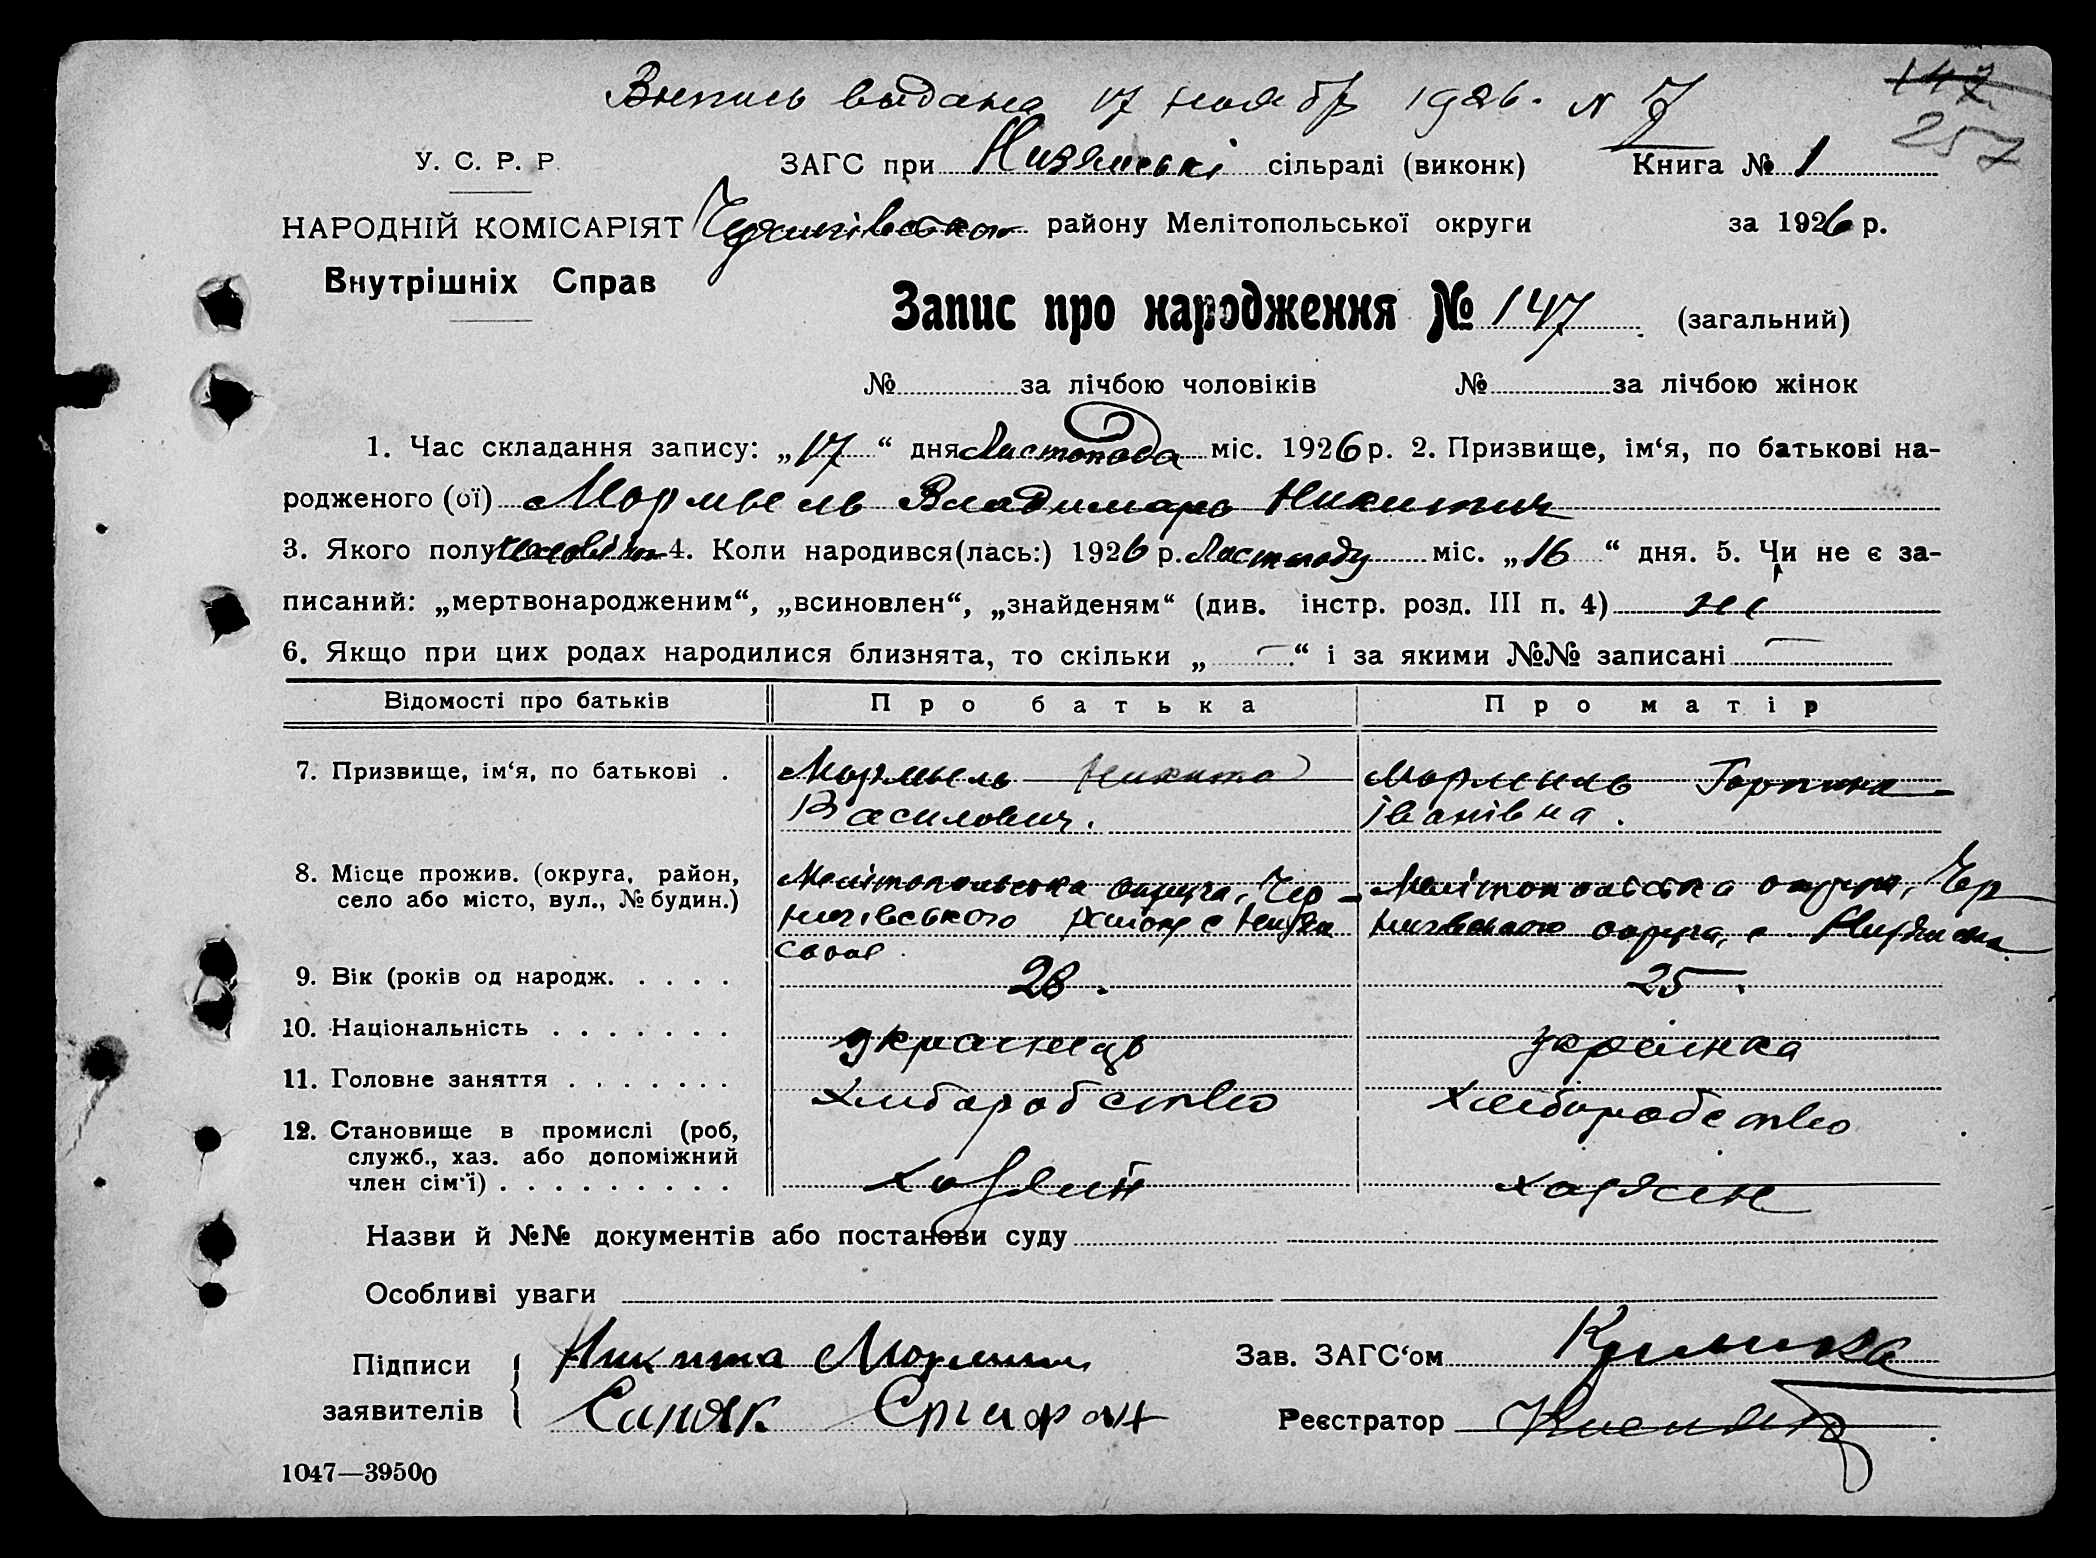 Выпись выдана 17 ноябр 1926. N 7
147
257
У. С. Р. Р. ЗАГС при Низянські сільраді (виконк) Книга № 1
НАРОДНІЙ КОМІСАРІЯТ району Мелітопольської округи за 1926 р.
Внутрішніх Справ
Запис про народження № 147 (загальний)
№ за лічбою чоловіків № за лічбою жінок
1. Час складання запису: „17“ дня Листопада міс. 1926 р. 2. Призвище, ім‘я, по батькові на-
родженого (ої) Мормыль Владимиръ Никитич
3. Якого полу 4. Коли народився(лась:) 1926 р. Листопаду міс. „16“ дня. 5. Чи не є за-
писаний: „мертвонародженим“, „всиновлен“, „знайденям“ (див. інстр. розд. III п. 4) ні
6. Якщо при цих родах народилися близнята, то скільки „—“ і за якими №№ записані —
Відомості про батьків Про батька Про матір
7. Призвище, ім‘я, по батькові . Мормыль Никита Мормиль Горпина
Василович. Іванівна.
8. Місце прожив. (округа, район, Мелітопольська округа, Чер- Мелітопольська округа, Чер
село або місто, вул., № будин.) нигівського району с нигівського округа, с
9. Вік (років од народж. . . . . 28. 25.
10. Національність . . . . . . . українець українка
11. Головне заняття . . . . . . . хлиборобство хлиборобство
12. Становище в промислі (роб,
служб., хаз. або допоміжний
член сім‘ї) . . . . . . . . . хозяин хазяін
Назви й №№ документів або постанови суду
Особливі уваги
Підписи Никита Мормиль Зав. ЗАГС‘ом
заявителів Реєстратор
1047—39500